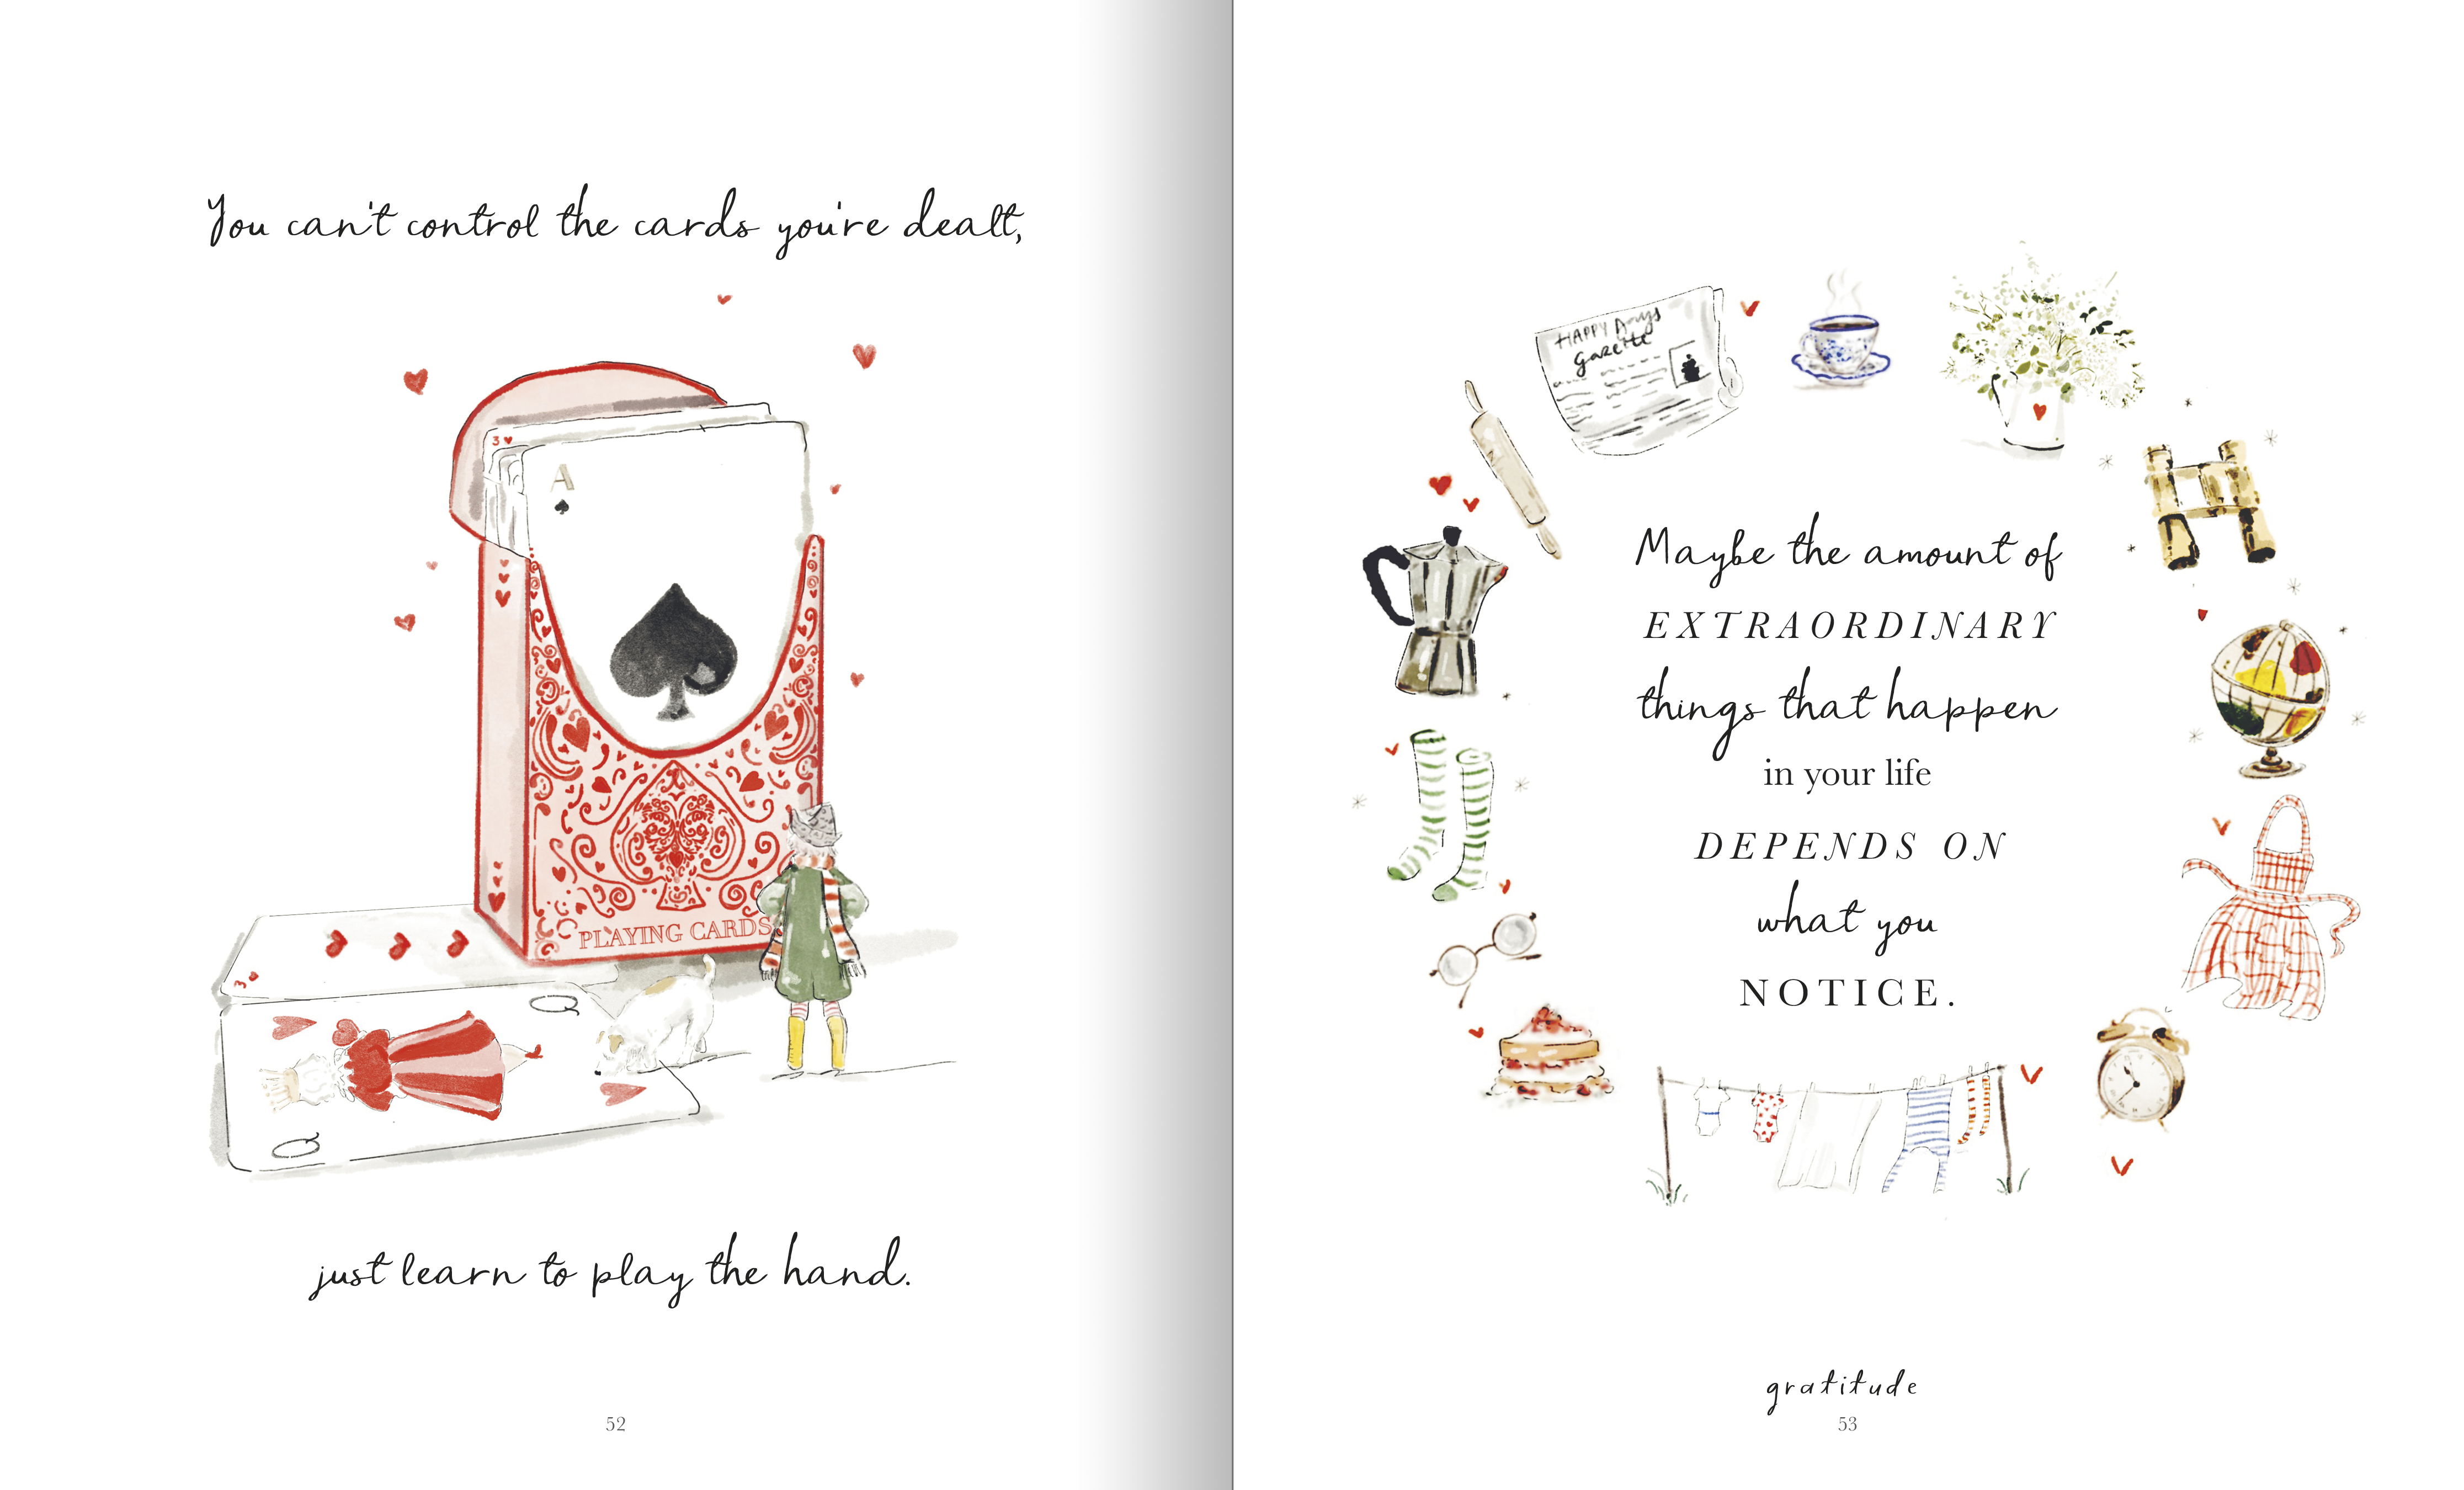 You can't control the cards you're dealt,
3
A
PLAYING CARDS
3
Q
Q
just learn to play the hand.
52
HAPPY DAYS
Gazette
Maybe the amount of
EXTRAORDINARY
things that happen
in your life
DEPENDS ON
what you
NOTICE.
gratitude
53